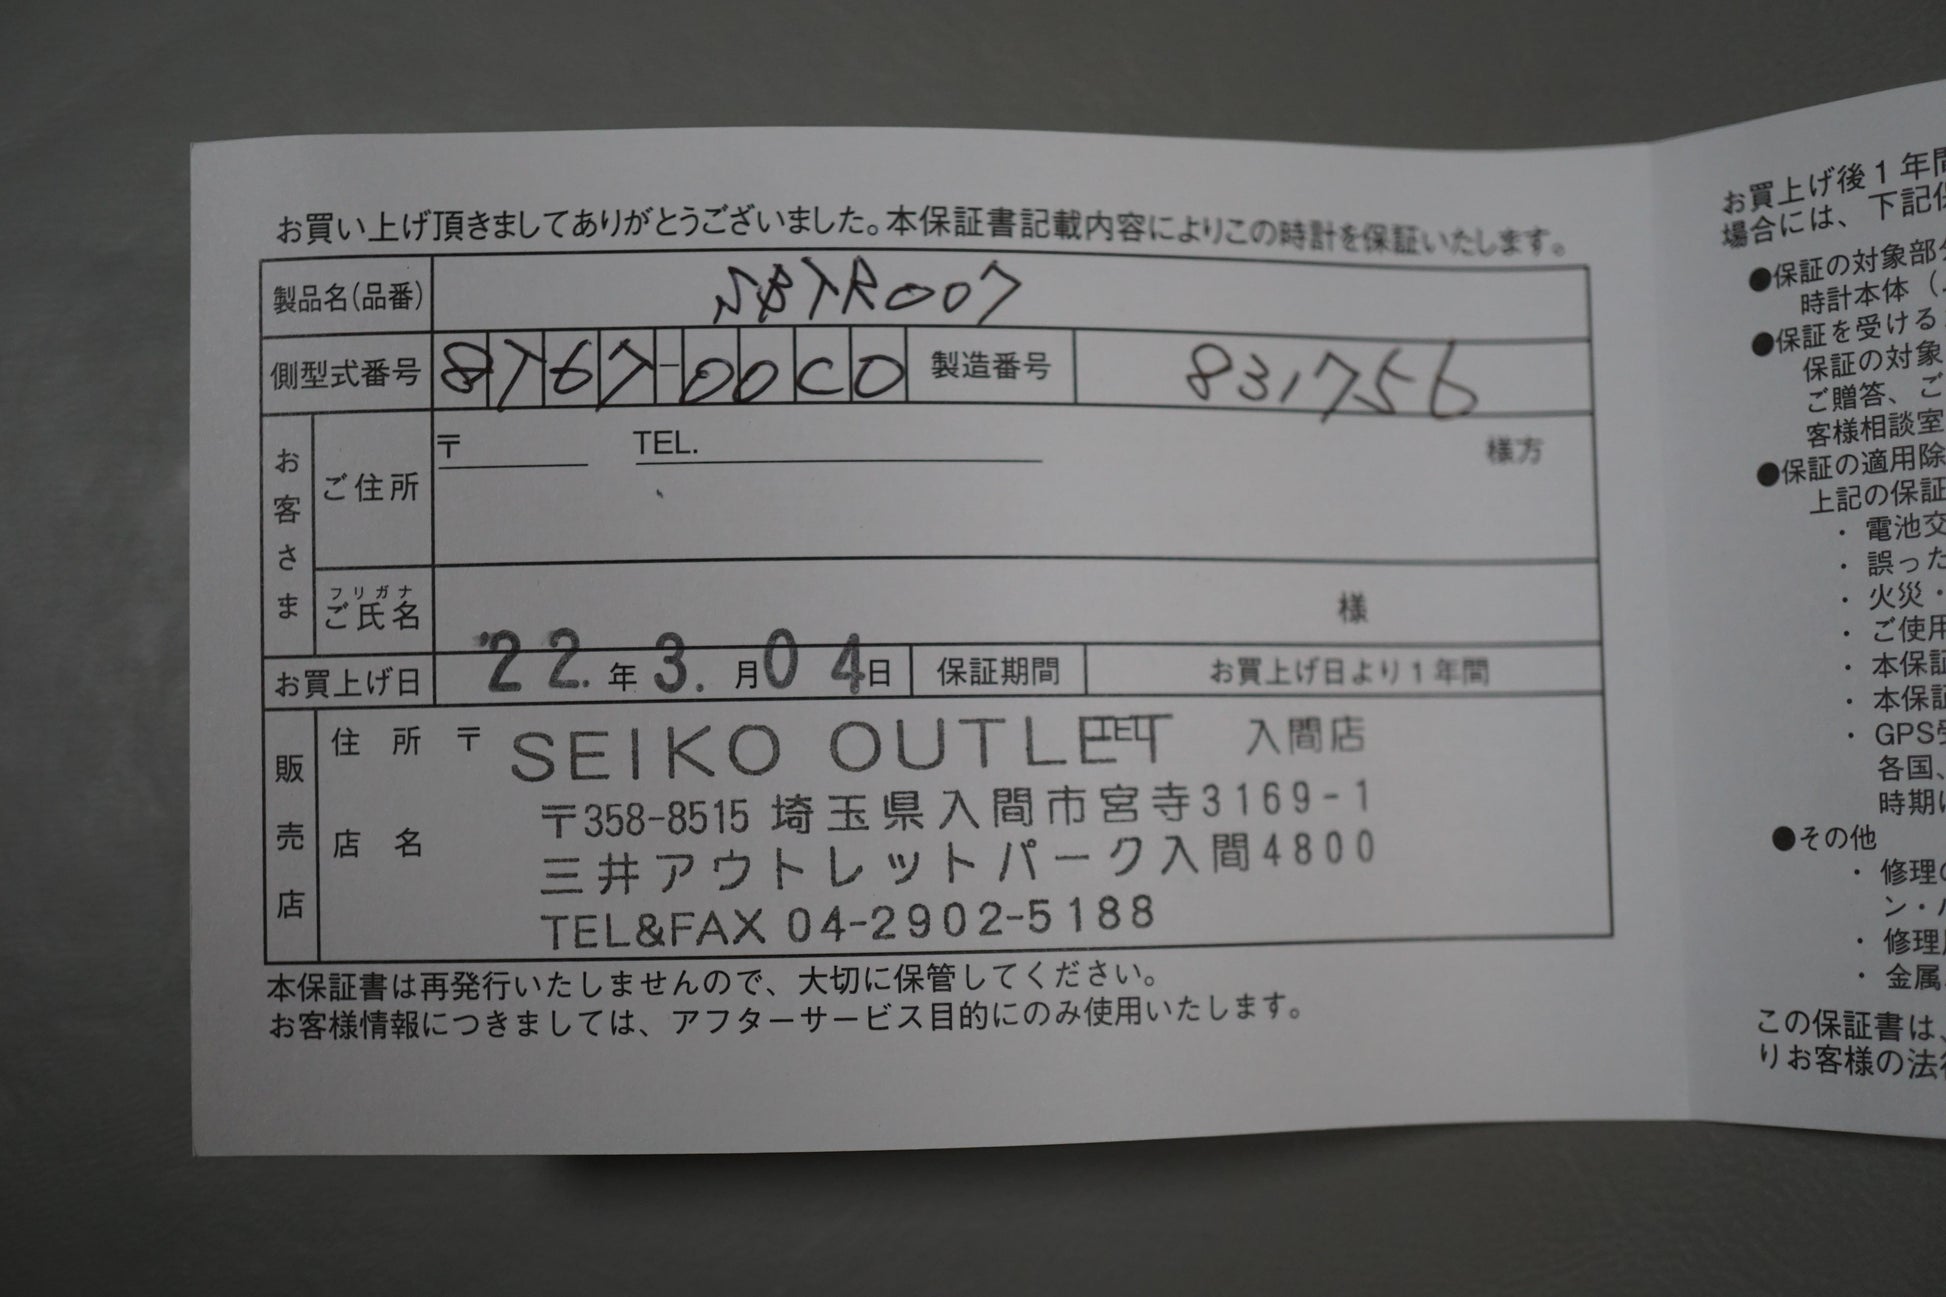 お買い上げ頂きましてありがとうございました。本保証書記載内容によりこの時計を保証いたします。
製品名(品番) SBTR007
側型式番号 8T67-00C0 製造番号 831756
お客さま
ご住所 〒 TEL. 様方
フリガナ
ご氏名 様
お買上げ日 '22.年3.月04日 保証期間 お買上げ日より1年間
販売店
住所 〒 SEIKO OUTLET 入間店
〒358-8515 埼玉県入間市宮寺3169-1
店名 三井アウトレットパーク入間4800
TEL&FAX 04-2902-5188
本保証書は再発行いたしませんので、大切に保管してください。
お客様情報につきましては、アフターサービス目的にのみ使用いたします。
お買上げ後1年間
場合には、下記保
●保証の対象部分
時計本体（
●保証を受ける
保証の対象
ご贈答、ご
客様相談室
●保証の適用除
上記の保証
・電池交
・誤った
・火災・
・ご使用
・本保証
・本保証
・GPS受
各国、
時期
●その他
・修理の
ン・
・修理
・金属
この保証書は、
りお客様の法律